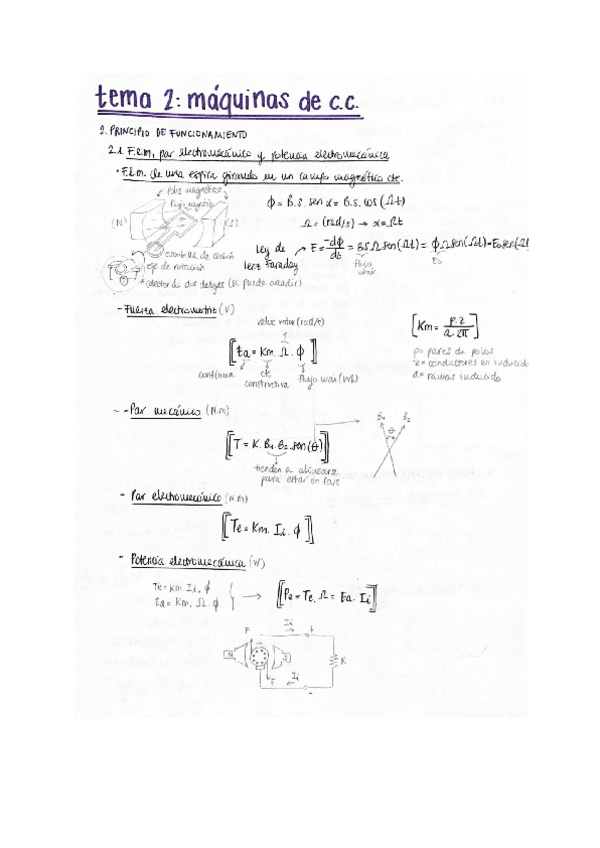 tema 2: máquinas de c.c.
2. PRINCIPIO DE FUNCIONAMIENTO
2.1. F.e.m, par electromecánico y potencia electromecánica
· F.e.m. de una espira girando en un campo magnético cte.
polos magnéticos
flujo magnético
(N) (S)
escobilla de carbón
eje de rotación
colector de dos delgas (se puede añadir)
ϕ = B.S. sen α = B.S. cos (Ωt)
Ω = (rad/s) → α = Ωt
Ley de Lenz Faraday
E = -dϕ/dt = BSΩ sen(Ωt) = ϕΩ sen(Ωt) = Eo sen(Ωt
flujo máx
Eo
- Fuerza electromotriz (V)
veloc rotor (rad/s)
[Ea = Km. Ω. ϕ]
continua
cte constructiva
flujo máx (Wb)
[Km = p.z / a.2π]
p = pares de polos
z = conductores en inducido
a = ramas inducido
- Par mecánico (N.m)
[T = K. B1. B2. sen(θ)]
tienden a alinearse
para estar en fase
B1 θ B2
- Par electromecánico (N.m)
[Te = Km. Ii. ϕ]
- Potencia electromecánica (W)
Te = Km. Ii. ϕ
Ea = Km. Ω. ϕ
→ [Pe = Te. Ω = Ea. Ii]
Ii
F +
N S
R
F Ii
-